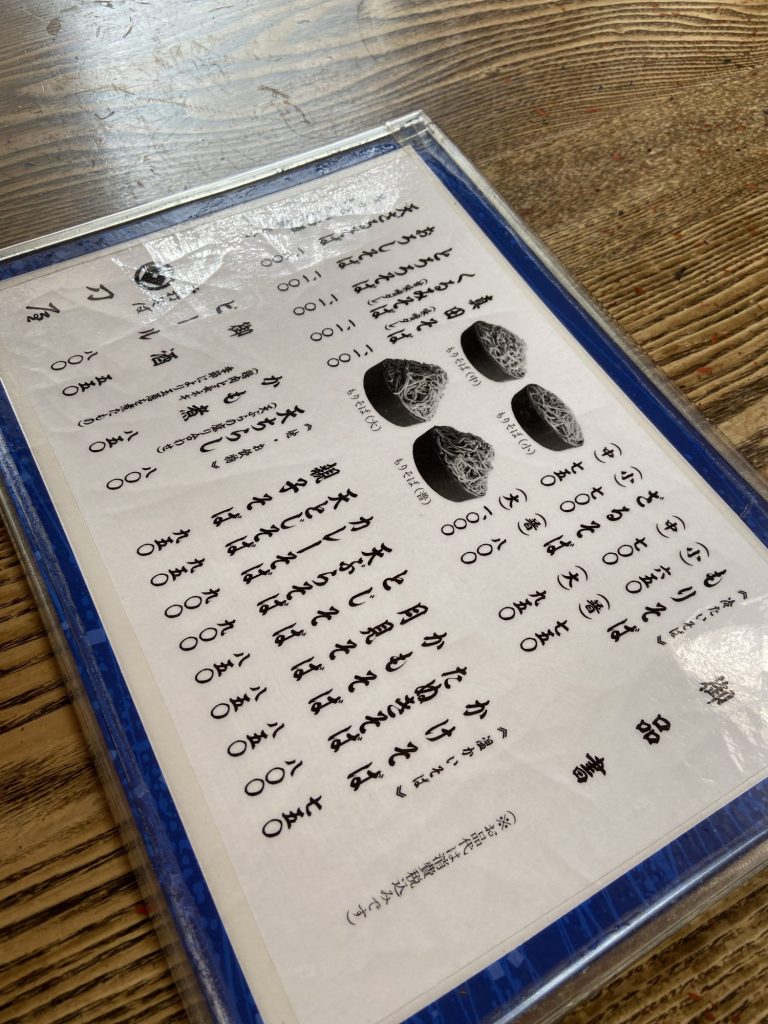 御品書
(※お品代は消費税込みです)
《冷たいそば》
もりそば
(小) 六五〇
(中) 七〇〇
(普) 七五〇
(大) 九五〇
ざるそば
(小) 七〇〇
(中) 七五〇
(普) 八〇〇
(大) 一、〇〇〇
もりそば(小)
もりそば(中)
もりそば(普)
もりそば(大)
真田そば
くるみそば
とろろそば
おろしそば
天ざるそば
《温かいそば》
かけそば 七五〇
たぬきそば 八〇〇
かもそば 八五〇
月見そば 八五〇
とじそば 八五〇
天ぷらそば 九〇〇
カレーそば 九〇〇
天とじそば 九五〇
親子そば 九五〇
《酒・お飲物》
天ちらし 八〇〇
(天ぷらの盛り合わせ)
かも煮 八五〇
御酒 五五〇
ビール 八〇〇
刀屋